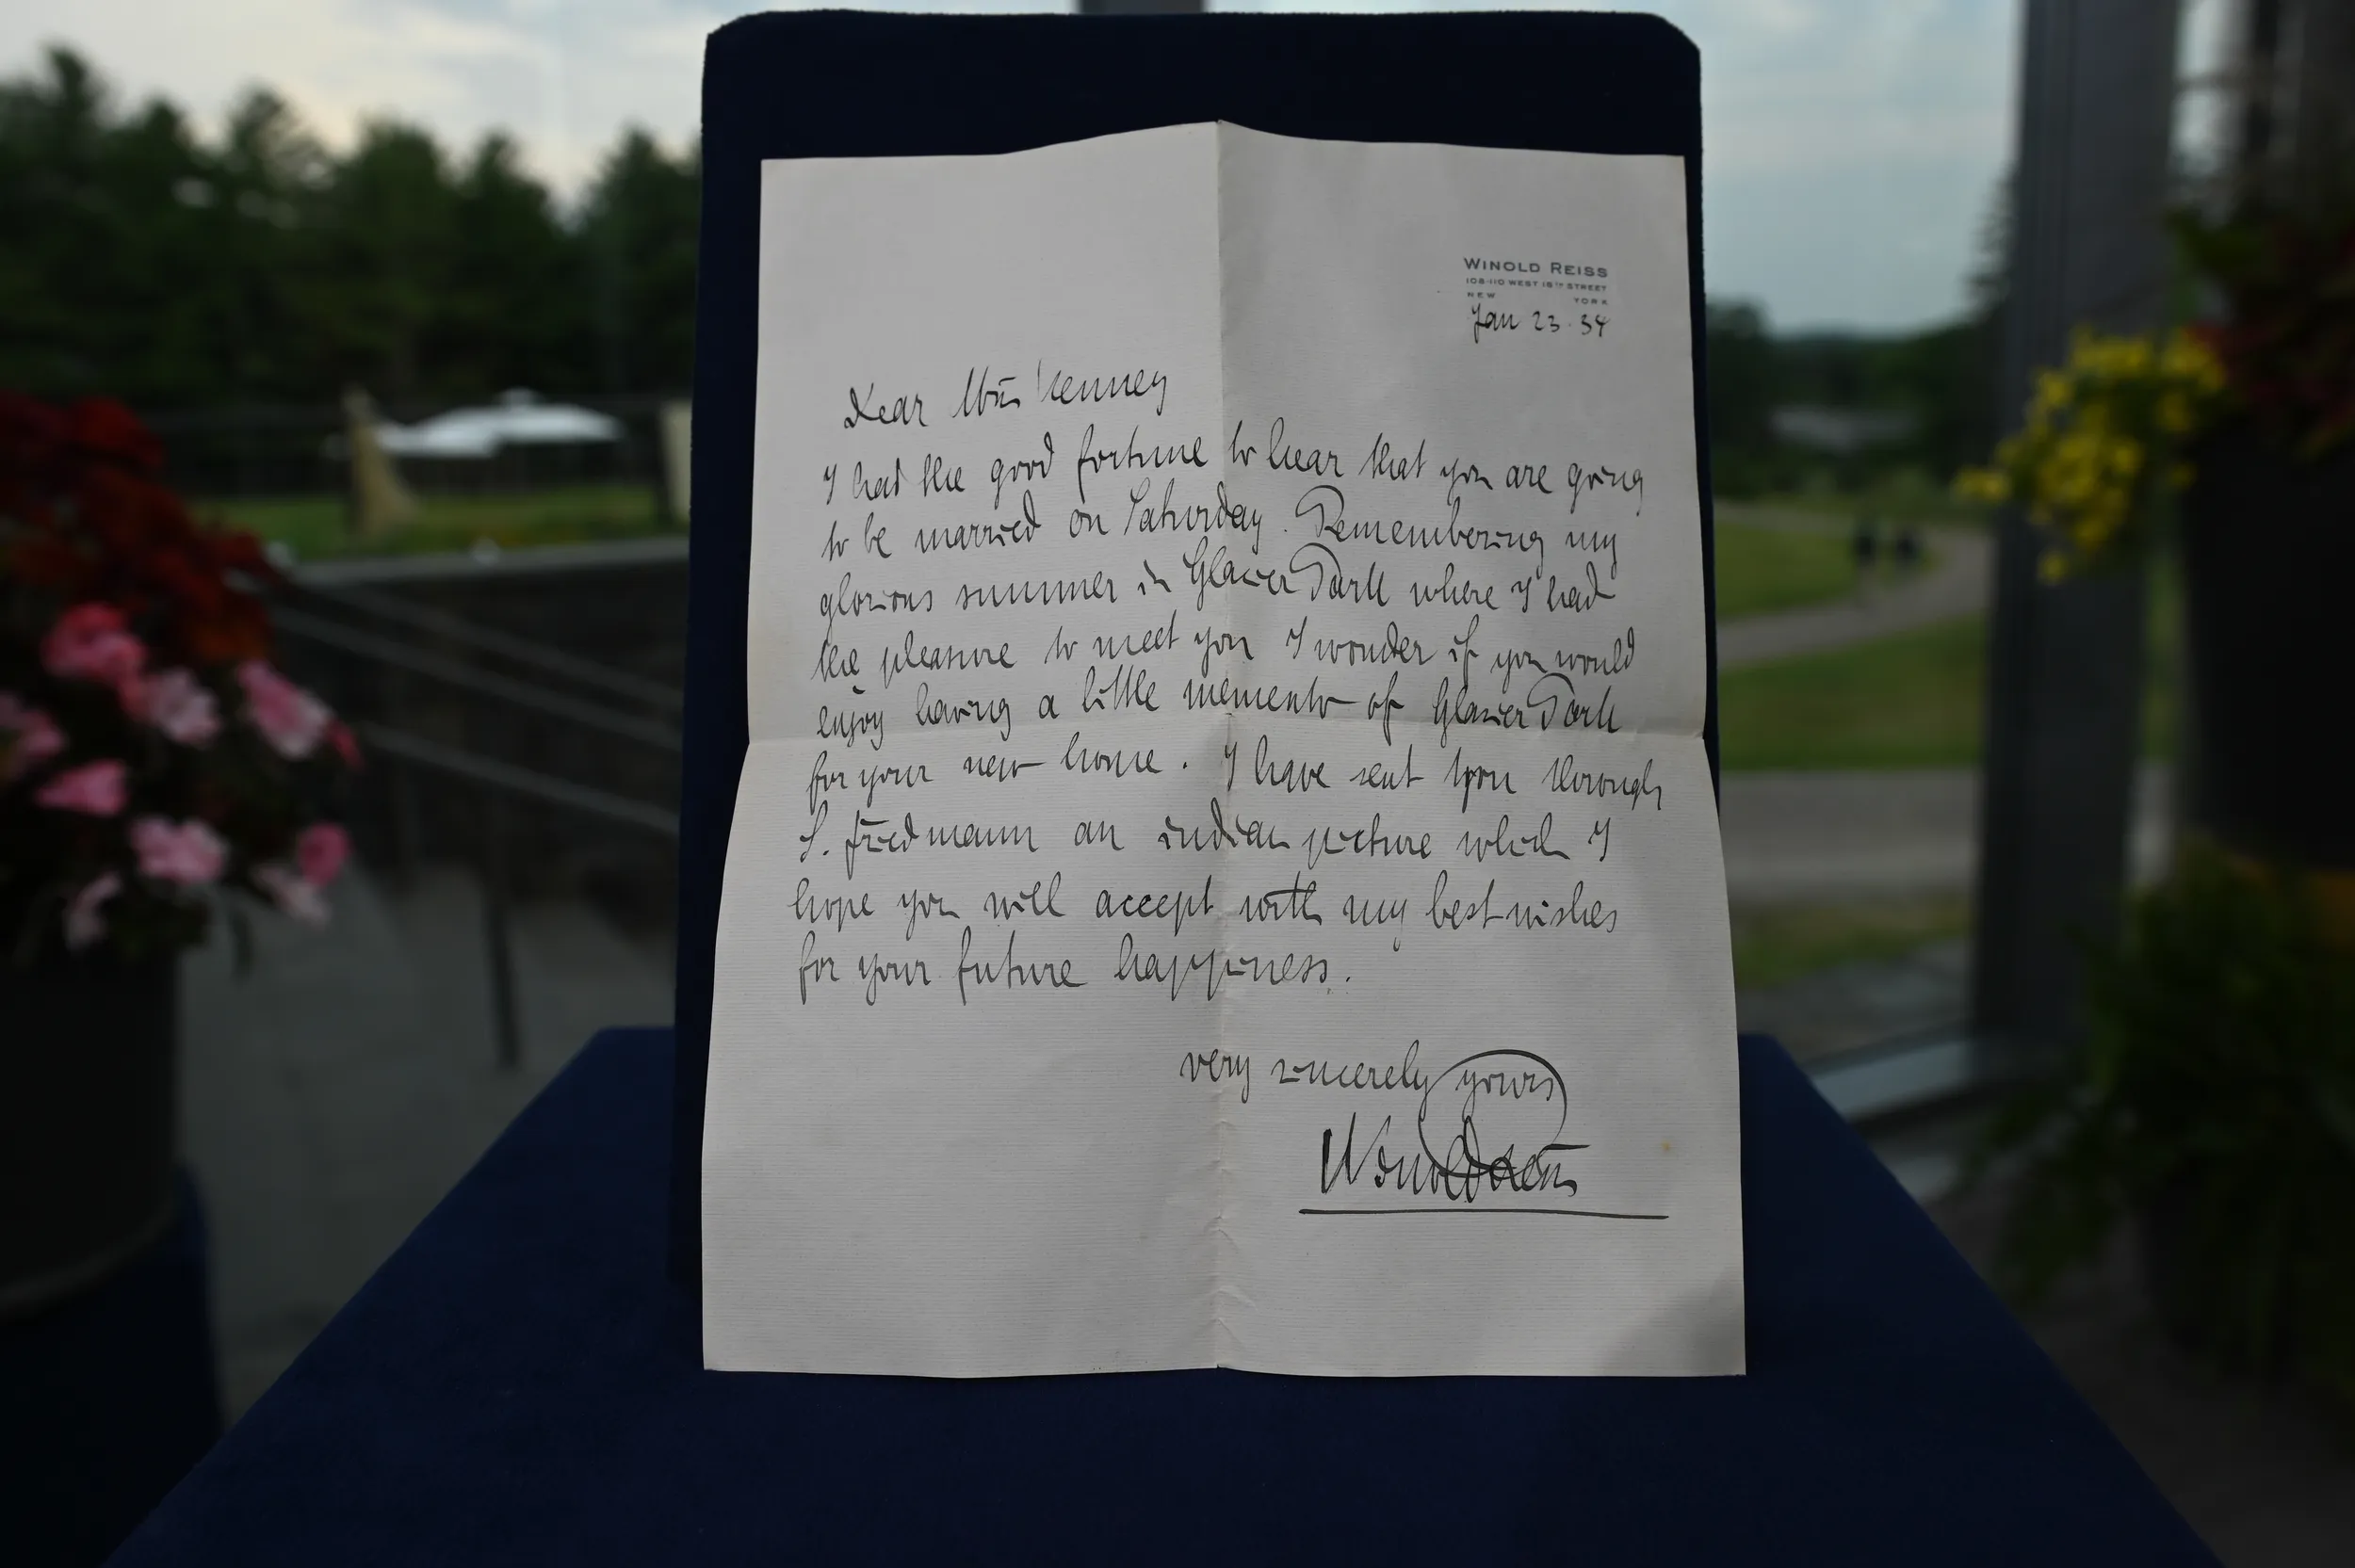 WINOLD REISS
108-110 WEST 18TH STREET
NEW YORK
Jan 23. 34
Dear Miss Kenney
I had the good fortune to hear that you are going
to be married on Saturday. Remembering my
glorious summer in Glacier Park where I had
the pleasure to meet you I wonder if you would
enjoy having a little memento of Glacier Park
for your new home. I have sent you through
S. Friedmann an indian picture which I
hope you will accept with my best wishes
for your future happiness.
very sincerely yours
Winold Reiss